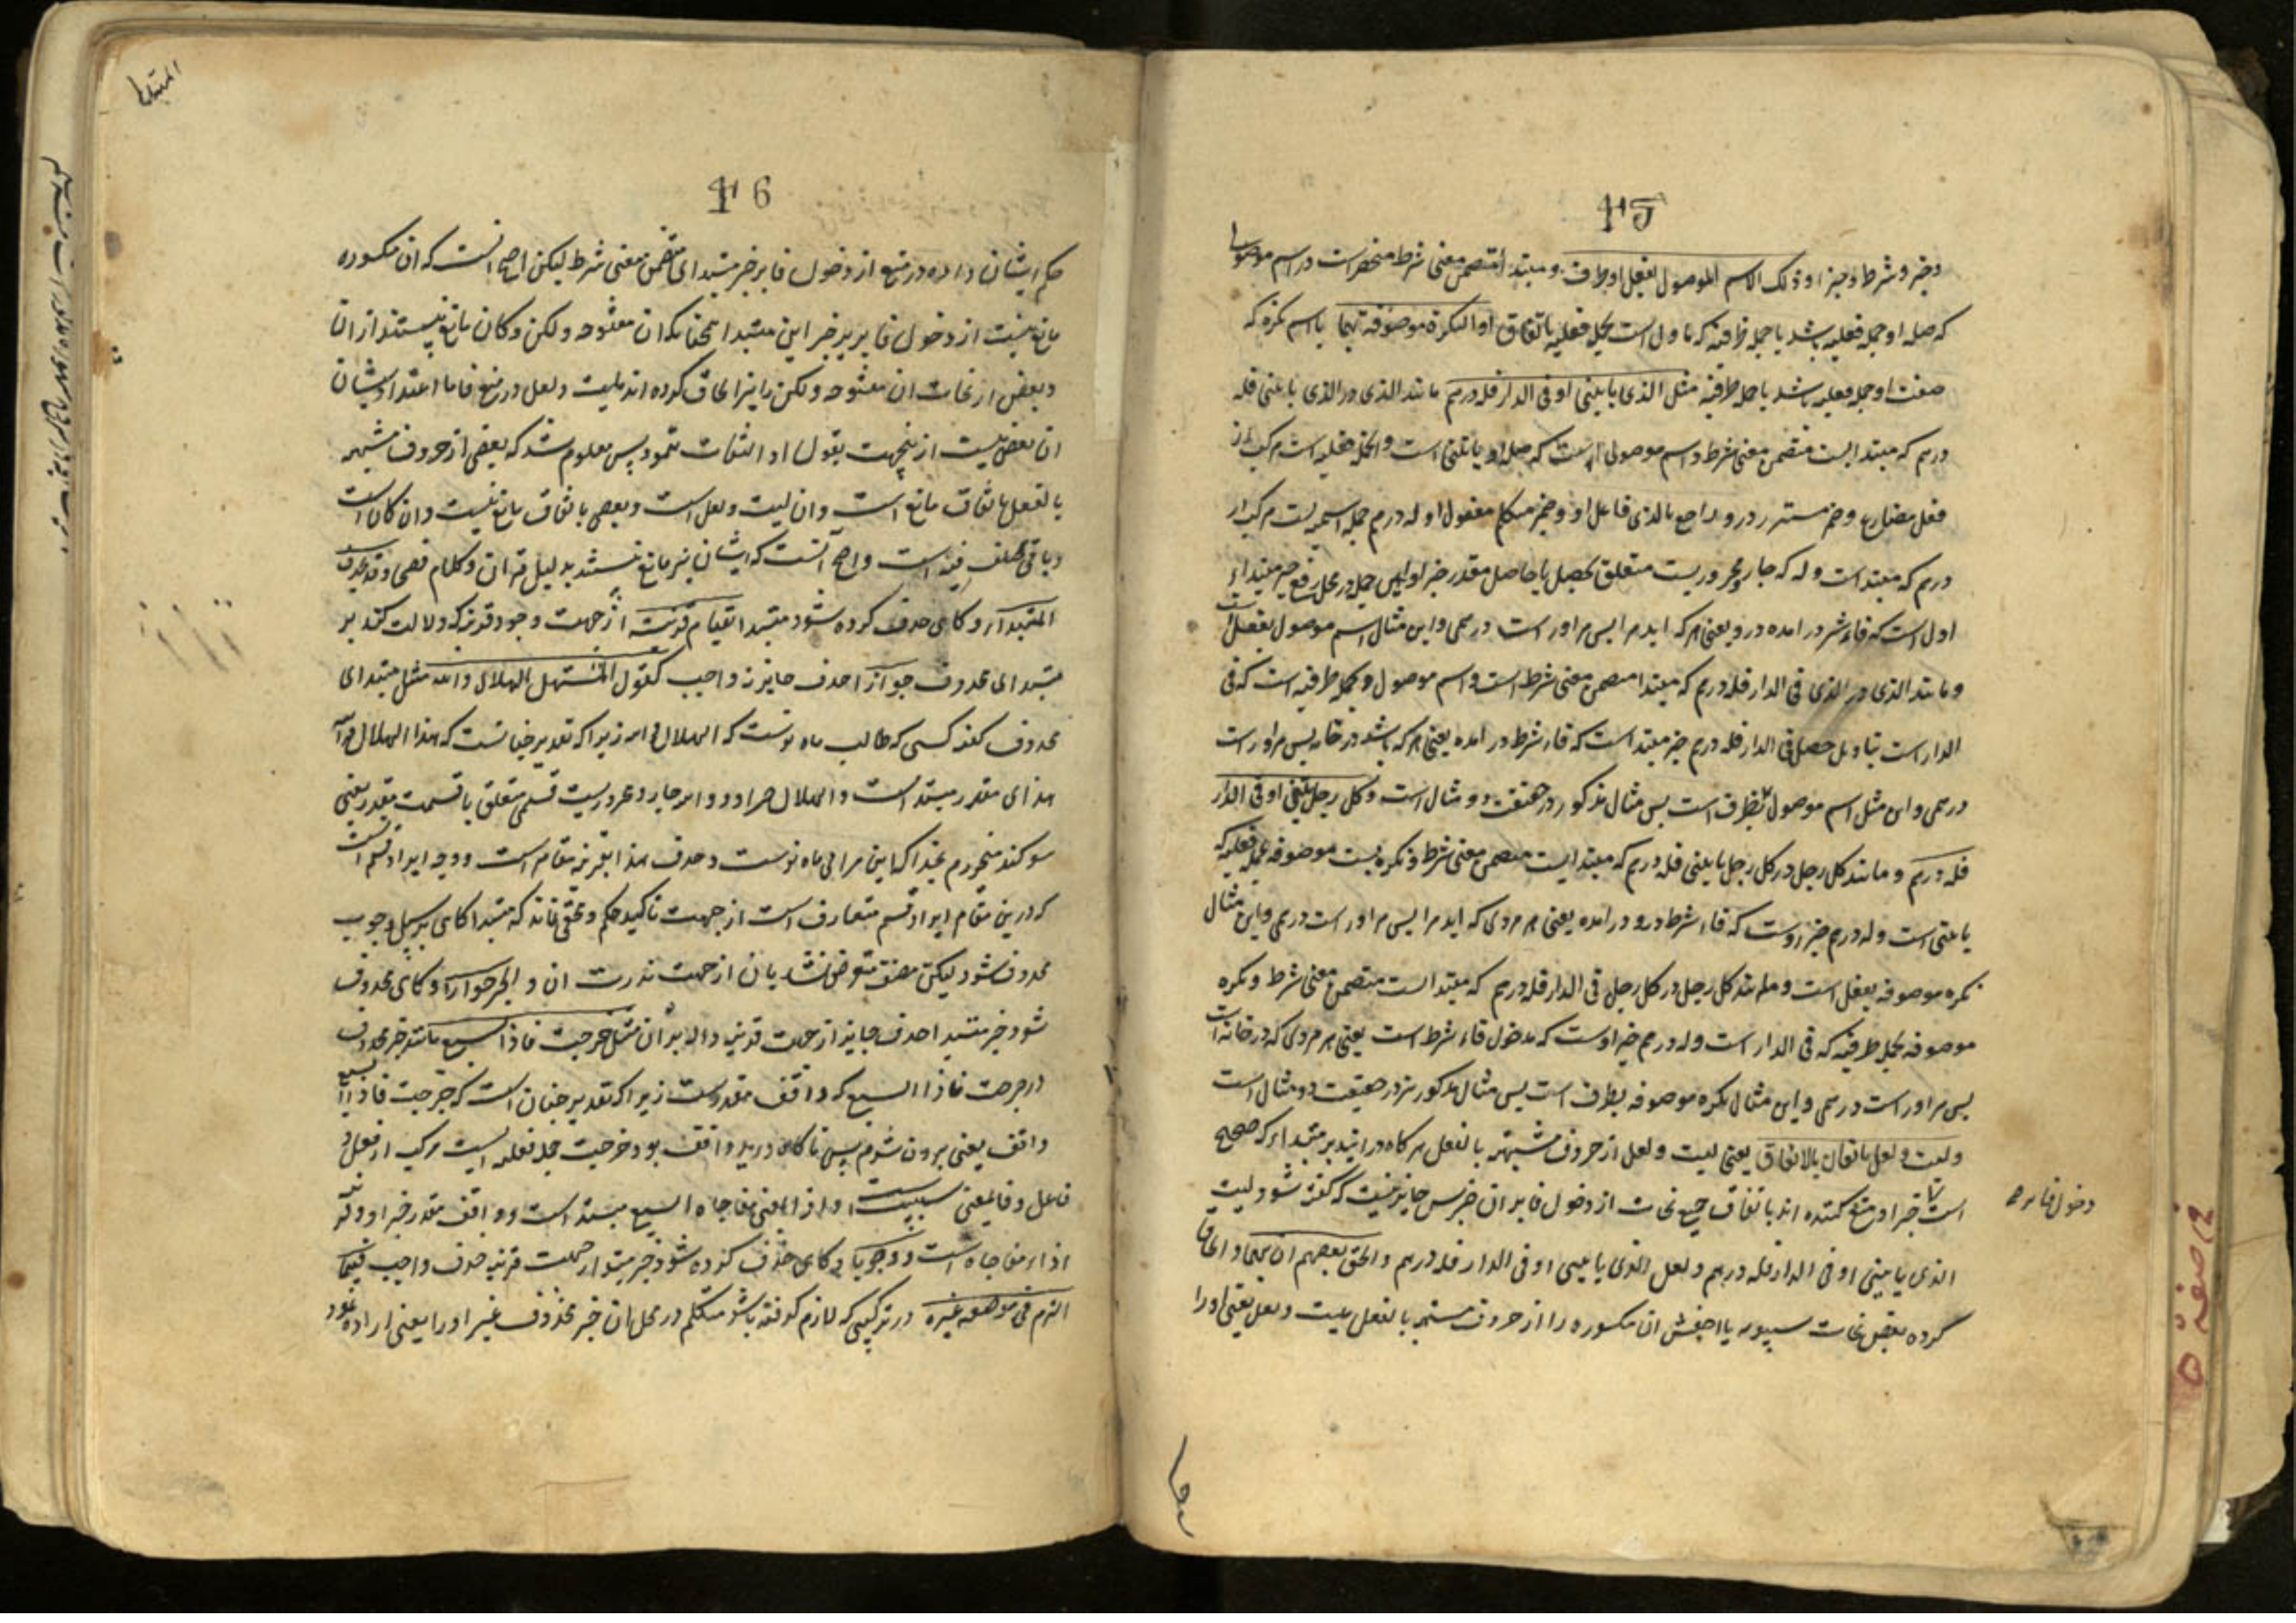 15
وخبر و شرط و جزا و ذلک الاسم الموصول بفعل او ظرف و مبتدا متضمن معنی شرط منحصر است در اسم موصول
که صله او جمله فعلیه باشد یا جمله ظرفیه که ماول است بجمله فعلیه باتفاق او النکرة موصوفة بهما یا اسم نکره که
صفت او جمله فعلیه باشد یا جمله ظرفیه مثل الذی یاتینی او فی الدار فله درهم مانند الذی در الذی یاتینی فله
درهم که مبتدا است متضمن معنی شرط و اسم موصولی است که صله او یاتینی است و جمله فعلیه است مرکب از
فعل مضارع و ضمیر مستتر در و راجع بالذی فاعل او و ضمیر متکلم مفعول او له درهم جمله اسمیه است مرکب از
درهم که مبتدا است و له که جار و مجروریست متعلق بحصل یا حاصل مقدر خبر او پس جمله در محل رفع خبر مبتداء
اول است که فاء شرط در امده در و یعنی هر که اید مرا پس مر اور است درهمی و این مثال اسم موصول بفعل است
و مانند الذی در الذی فی الدار فله درهم که مبتدا متضمن معنی شرط است و اسم موصول بجمله ظرفیه است که فی
الدار است بتاویل حصل فی الدار فله درهم خبر مبتدا است که فاء شرط در امده یعنی هر که باشد در خانه پس مر اور است
درهمی و این مثل اسم موصول بظرف است پس مثال مذکور در حقیقت دو مثال است و کل رجل یاتینی او فی الدار
فله درهم و مانند کل رجل در کل رجل یاتینی فله درهم که مبتدا است متضمن معنی شرط و نکره است موصوفه بجمله فعلیه که
یاتینی است و له درهم خبر اوست که فاء شرط در و در امده یعنی هر مردی که اید مرا پس مر اور است درهمی و این مثال
نکره موصوفه بفعل است و مانند کل رجل در کل رجل فی الدار فله درهم که مبتدا است متضمن معنی شرط و نکره
موصوفه بجمله ظرفیه که فی الدار است و له درهم خبر اوست که مدخول فاء شرط است یعنی هر مردی که در خانه است
پس مر اور است درهمی و این مثال نکره موصوفه بظرف است پس مثال مذکور نیز در حقیقت دو مثال است
و لیت و لعل مانعان بالاتفاق یعنی لیت و لعل از حروف مشبهه بالفعل هر کاه در ایند بر مبتداء که صحیح
است خبر او منع کننده اند باتفاق جمیع نحات از دخول فا بر ان خبر پس جایز نیست که کفته شود لیت
دخول فا بر خبر
الذی یاتینی او فی الدار فله درهم و لعل الذی یاتینی او فی الدار فله درهم و الحق بعضهم ان بهما و الحاق
کرده بعض نحات سیبویه یا اخفش ان مکسوره را از حروف مشبهه بالفعل بلیت و لعل یعنی او را
16
المبتداء
حکم ایشان داده در منع از دخول فا بر خبر مبتدای متضمن معنی شرط لیکن اصح انست که ان مکسوره
مانع نیست از دخول فا بر خبر این مبتدا همچنانکه ان مفتوحه و لکن و کان مانع نیستند از ان
و بعض از نحات ان مفتوحه و لکن را نیز الحاق کرده اند بلیت و لعل در منع فا ما اعتداد بشان
ان بعض نیست ازینجهت بقول او التفات ننمود پس معلوم شد که بعضی از حروف مشبهه
بالفعل باتفاق مانع است و ان لیت و لعل است و بعضی باتفاق مانع نیست و ان کان است
و باقی مختلف فیه است و اصح انست که ایشان نیز مانع نیستند بدلیل قران و کلام فصحا و قد یحذف
المبتدا و کاهی حذف کرده شود مبتدا لقیام قرینة از جهت وجود قرینه که دلالت کند بر
مبتدای محذوف جوازا حذف جایز نه واجب کقول المستهل الهلال والله مثل مبتدای
محذوف کفته کسی که طالب ماه نوست که الهلال والله زیرا که تقدیر چنانست که هذا الهلال والله
هذای مقدر مبتدا است و الهلال خبر او و والله جار و مجروریست قسمی متعلق باقسمت مقدر یعنی
سوکند میخورم بخدا که این مرئی ماه نوست و حذف هذا بقرینه مقام است و وجه ایراد قسم انست
که درین مقام ایراد قسم متعارف است از جهت تاکید حکم و مخفی نماند که مبتدا کاهی بر سبیل وجوب
محذوف شود لیکن مصنف متعرض نشد بان از جهت ندرت ان و الخبر جوازا و کاهی محذوف
شود خبر مبتدا حذف جایز از جهت قرینه داله بر ان مثل خرجت فاذا السبع مانند خبر محذوف
در خرجت فاذا السبع که واقف مقدر است زیرا که تقدیر چنان است که خرجت فاذا السبع
واقف یعنی برون شدم پس ناکاه درنده واقف بود خرجت جمله فعلیه است مرکب از فعل و
فاعل و فا بمعنی سببیت است و اذا بمعنی مفاجاه السبع مبتدا است و واقف مقدر خبر او و قرینه
اذاء مفاجاه است و وجوبا و کاهی حذف کرده شود خبر مبتدا از جهت قرینه حذف واجب فیما
التزم فی موضعه غیره در ترکیبی که لازم کرفته باشد متکلم در محل ان خبر محذوف غیر او را یعنی اراده نمود